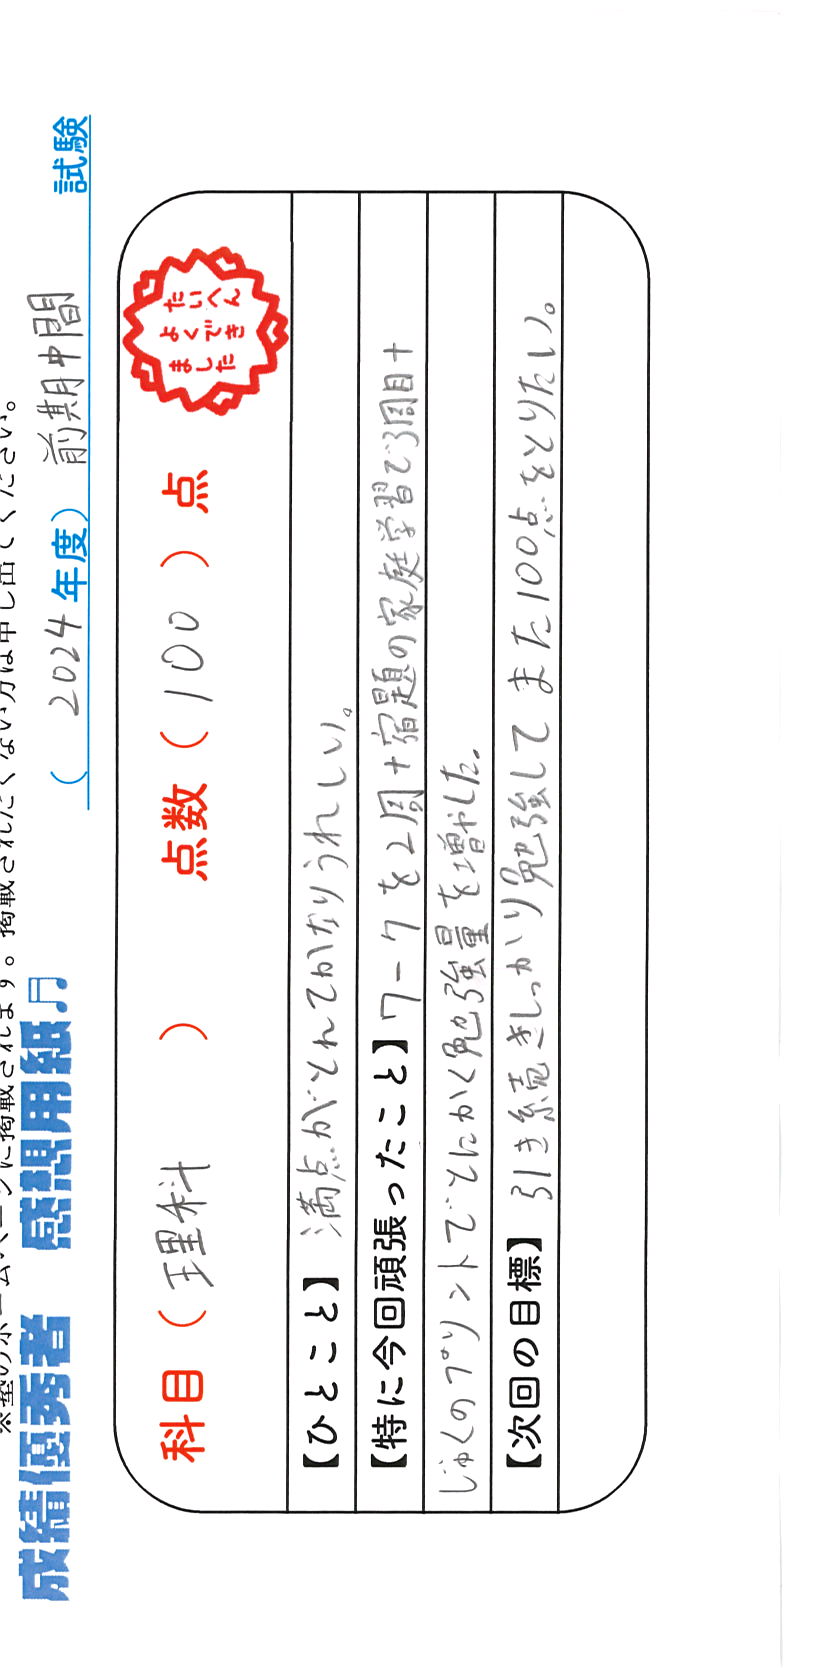 ※塾のホームページに掲載されます。掲載されたくない方は申し出てください。
成績優秀者 感想用紙♫ ( 2024 年度) 前期中間 試験
科目 ( 理科 ) 点数 ( 100 ) 点
たいへん
よくでき
ました
【ひとこと】 満点がとれてかなりうれしい。
【特に今回頑張ったこと】 ワークを2周+宿題の家庭学習で3周目+
じゅくのプリントでとにかく勉強量を増やした。
【次回の目標】 引き続きしっかり勉強してまた100点をとりたい。